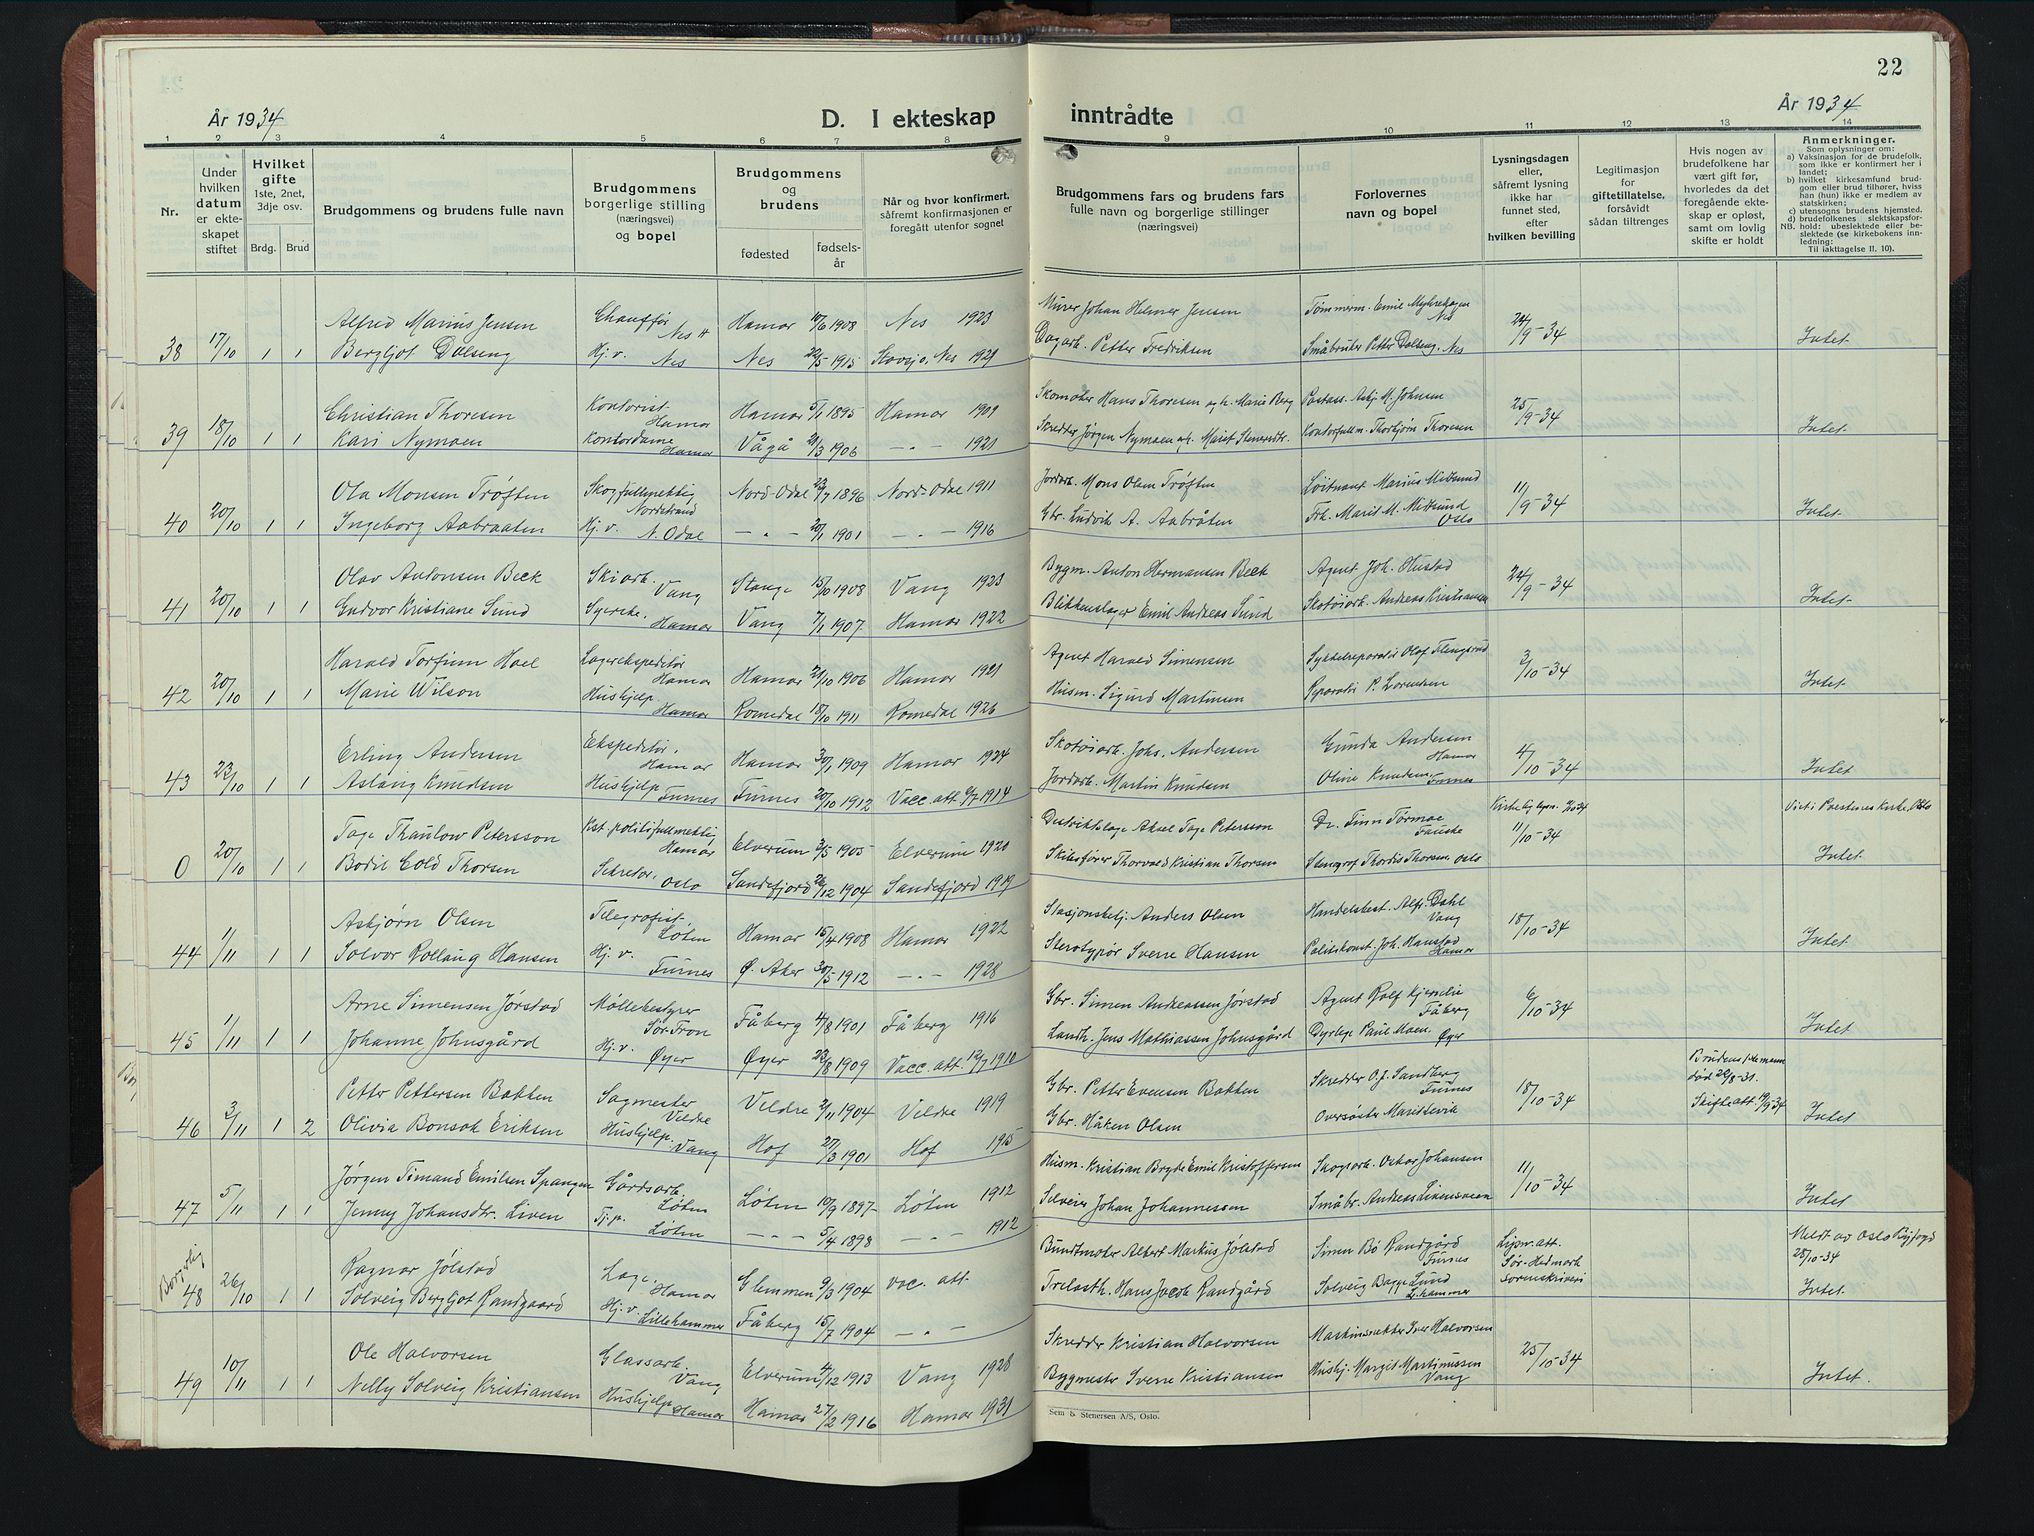 22
År 1934
D. I ekteskap
inntrådte
År 1934
1 2 3 4 5 6 7 8
9 10 11 12 13 14
Nr.
Under hvilken datum er ekteskapet stiftet
Hvilket gifte 1ste, 2net, 3dje osv.
Brdg. Brud
Brudgommens og brudens fulle navn
Brudgommens borgerlige stilling (næringsvei) og bopel
Brudgommens og brudens
fødested
fødsels-år
Når og hvor konfirmert, såfremt konfirmasjonen er foregått utenfor sognet
Brudgommens fars og brudens fars fulle navn og borgerlige stillinger (næringsvei)
Forlovernes navn og bopel
Lysningsdagen eller, såfremt lysning ikke har funnet sted, efter hvilken bevilling
Legitimasjon for giftetillatelse, forsåvidt sådan tiltrenges
Hvis nogen av brudefolkene har vært gift før, hvorledes da det foregående ekteskap er opløst, samt om lovlig skifte er holdt
Anmerkninger.
Som oplysninger om:
a) Vaksinasjon for de brudefolk, som ikke er konfirmert her i landet;
b) hvilket kirkesamfund brudgom eller brud tilhører, hviss han (hun) ikke er medlem av statskirken;
c) utensogns brudens hjemsted.
d) brudefolkenes slektskapsforhold: ubeslektede eller beslektede (se kirkebokens innledning:
NB.
Til iakttagelse II. 10).
Alfred Marius Jensen Chauffør Nes H Hamar 10/6 1908 Nes 1923 Murer Johan Helmer Jensen Tømmerm. Emil Myhrehagen Nes
38 17/10 1 1 Bergljot Dalseng Hj. v. Nes Nes 22/5 1915 Stavsjø, Nes 1929 Dagarb. Petter Fredriksen Småbruker Petter Dalseng, Nes 24/9-34 Intet
Christian Thoresen Kontorist Hamar Hamar 5/1 1895 Hamar 1909 Skomaker Hans Thoresen og h. Marie Berg Postass. Asbj. M. Johnsen
39 18/10 1 1 Kari Nymoen Kontordame Hamar Vågå 21/3 1906 -"- 1921 Skredder Jørgen Nymoen og h. Marit Stenersdtr. Kontorfullm. Thorbjørn Thoresen 25/9-34 Intet
Ola Monsen Trøften Skogfullmektig Nordstrand Nord-Odal 23/7 1896 Nord-Odal 1911 Jordarb. Mons Olsen Trøften Løitnant Marius Midsund
40 20/10 1 1 Ingeborg Aabraaten Hj. v. N. Odal -"- 20/1 1901 -"- 1916 Gbr. Ludvik A. Aabråten Frk. Marit M. Midsund Oslo 11/9-34 Intet
Olav Antonsen Beck Skiarb. Vang Stange 15/10 1908 Vang 1923 Bygm. Anton Hermansen Beck Agent Joh. Hustad
41 20/10 1 1 Gudvor Kristiane Sund Syerske. Hamar Vang 7/1 1907 Hamar 1922 Blikkenslager Emil Andreas Sund Skotøiarb. Andreas Kristiansen 24/9-34 Intet
Harald Torfinn Hoel Lagerekspeditør Hamar Hamar 21/10 1906 Hamar 1921 Agent Harald Simensen Sykkelreparatør Olaf
42 20/10 1 1 Marie Wilson Hushjelp Hamar Romedal 18/10 1911 Romedal 1926 Husm. Sigurd Martinsen Reparatør P. Lorentzen 3/10-34 Intet
Erling Andersen Ekspeditør. Hamar Hamar 30/1 1909 Hamar 1924 Skotøiarb. Johs. Andersen Gunda Andersen Hamar
43 23/10 1 1 Aslaug Knudsen Hushjelp Furnes Furnes 20/10 1912 Vacc. att. 6/7 1914 Jordarb. Martin Knudsen Oline Knudsen Furnes 4/10-34 Intet
Tage Thaulow Petersson Kst. politifullmektig Hamar Elverum 3/5 1905 Elverum 1920 Distriktslæge Aksel Tage Petersson Dr. Finn Tørmoe Fauske Viet i Prestenes Kirke, Oslo
0 20/10 1 1 Bodil Cold Thorsen Sekretær. Oslo Sandefjord 26/12 1904 Sandefjord 1919 Skibsfører Thorvald Kristian Thorsen Stenograf Thordis Thorsen Oslo 11/10-34 Intet
Asbjørn Olsen Telegrafist. Løten Hamar 15/4 1908 Hamar 1922 Stasjonsbetj. Anders Olsen Handelsbest. Alfr. Dahl Vang
44 1/11 1 1 Solvor Rollaug Hansen Hj. v. Furnes Ø. Aker 30/5 1912 -"- 1928 Sterotypør Sverre Hansen Politikonst. Joh. Hanstad Hamar 18/10-34 Intet
Arne Simensen Jørstad Møllebestyrer Sør-Fron Fåberg 4/8 1901 Fåberg 1916 Gbr. Simen Andreassen Jørstad Agent Rolf Kjernlie Fåberg
45 1/11 1 1 Johanne Johnsgård Hj. v. Øyer Øyer 23/8 1909 Vacc. att. 12/7 1910 Landh. Jens Mathiassen Johnsgård Dyrlege Paul Moen Øyer 6/10-34 Intet
Petter Pettersen Bakken Sagmester Veldre Veldre 2/11 1904 Veldre 1919 Gbr. Petter Evensen Bakken Skredder O. J. Sandberg Furnes Brudens 1ste mann død 20/8-31.
46 3/11 1 2 Olivia Bonsak Eriksen Hushjelp. Vang Hof 27/3 1901 Hof 1915 Gbr. Håken Olsen Oversøster Marie Levik 18/10-34 Skifteatt. 19/9-34 Intet
Jørgen Timand Emilsen Spangen Gårdsarb. Løten Løten 10/9 1897 Løten 1912 Husm. Kristian Brynde Emil Kristoffersen Skogarb. Oskar Johansen
47 5/11 1 1 Jenny Johansdtr. Liven Tj. p. Løten -"- 5/4 1898 -"- 1912 Selveier Johan Johannessen Småbr. Andreas Livensveen 11/10-34 Intet
Borgerlig Ragnar Jølstad Læge. Hamar Glemmen 9/3 1904 vac. att. Buntmaker Albert Markus Jølstad Simen Bø Randgård Furnes Lysn. att. Sør-Hedmark sorenskriveri Meldt av Oslo Byfogd 28/10-34
48 26/10 1 1 Solveig Bergljot Randgaard Hj. v. Lillehammer Fåberg 15/7 1904 -"- Trelasth. Hans Jacob Randgård Solveig Bagge Lund L.hammer Intet
Ole Halvorsen Glassarb. Vang Elverum 4/12 1913 Vang 1928 Skredder Kristian Halvorsen Maskinsnekker Iver Halvorsen
49 10/11 1 1 Nelly Solveig Kristiansen Hushjelp Hamar Hamar 27/2 1916 Hamar 1931 Bygmester Sverre Kristiansen Hushj. Margit Martinussen Vang 25/10-34 Intet.
Sem & Stenersen A/S, Oslo.